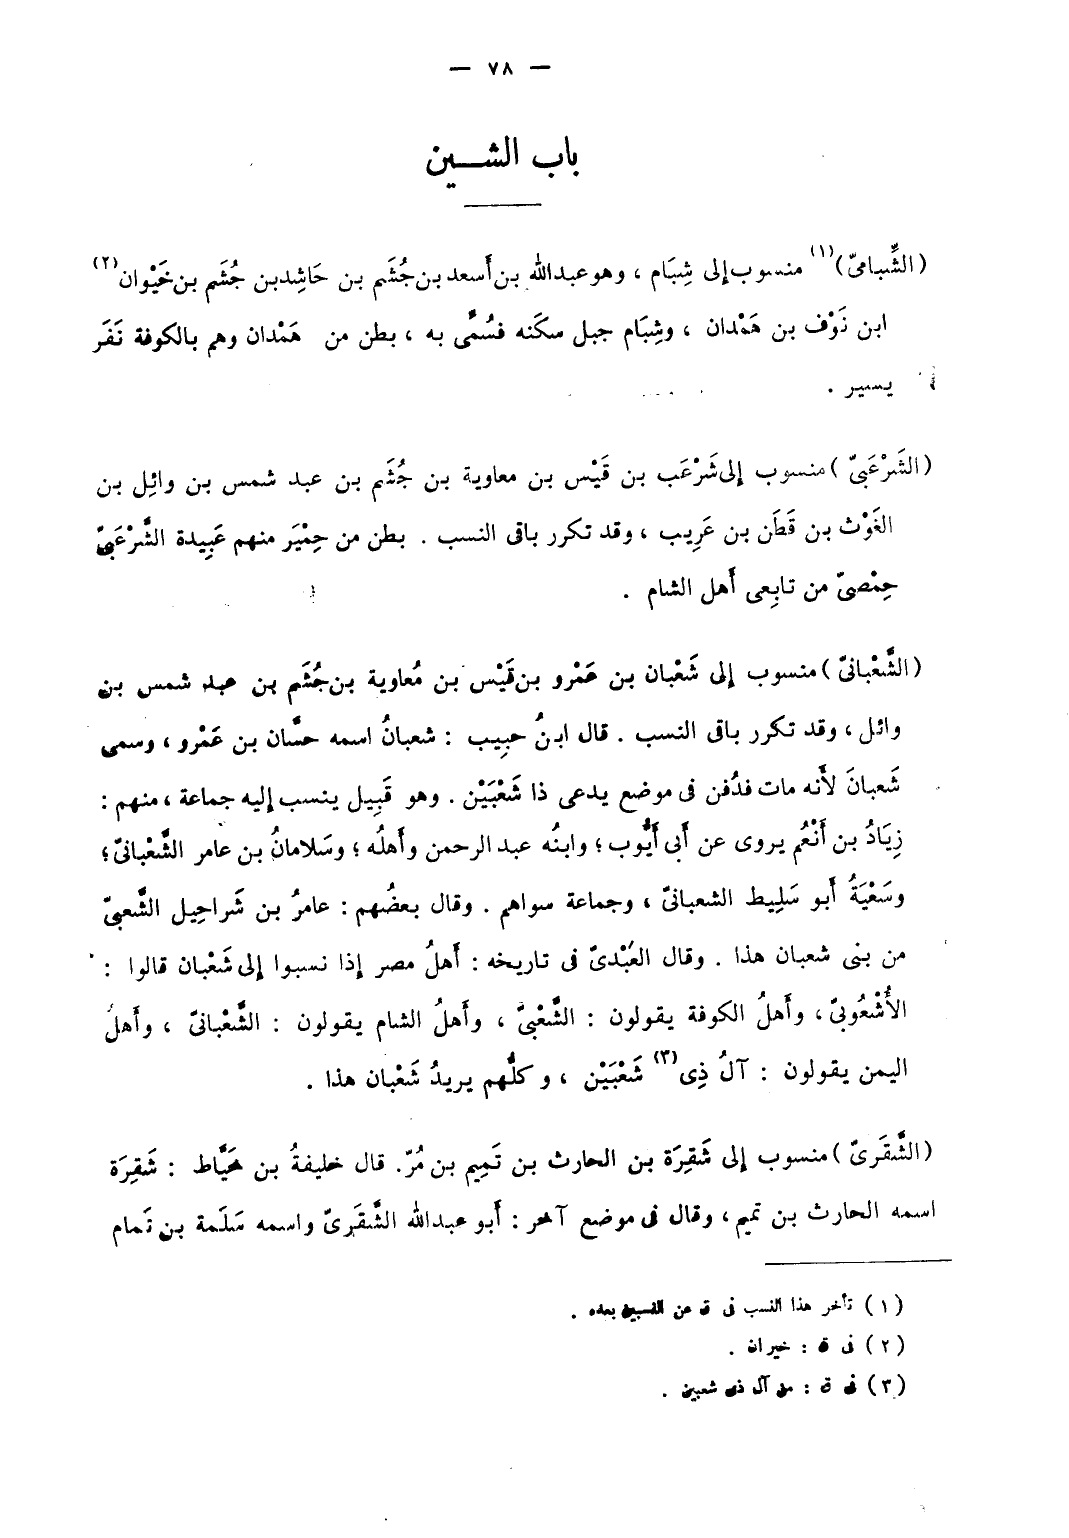 — ٧٨ —
باب الشــين
(الشِّبامىّ)(١) منسوب إلى شِبَام ، وهو عبدالله بن أَسعد بن جُشَم بن حَاشِد بن جُشَم بن خَيْوان(٢)
ابن نَوْف بن هَمْدان ، وشِبَام جبل سكَنه فسُمِّى به ، بطن من هَمْدان وهم بالكوفة نَفَر
يسير .
(الشَرْعَبىّ) منسوب إلى شَرْعَب بن قَيْس بن معاوية بن جُشَم بن عبد شمس بن وائِل بن
الغَوْث بن قَطَن بن عَرِيب ، وقد تكرر باقى النسب . بطن من حِمْيَر منهم عَبِيدة الشَّرْعَبىّ
حِمْصىّ من تابِعى أَهل الشام .
(الشَّعْبانىّ) منسوب إلى شَعْبان بن عَمْرو بن قَيْس بن مُعاوية بن جُشَم بن عبد شمس بن
وائل ، وقد تكرر باقى النسب . قال ابنُ حبِيب : شعبانُ اسمه حسَّان بن عَمْرو ، وسمى
شَعبانَ لأَنه مات فدُفن فى موضع يدعى ذا شَعْبَيْن . وهو قَبِيل ينسب إليه جماعة ، منهم :
زِيَادُ بن أَنْعُم يروى عن أَبى أَيُّوب ؛ وابنُه عبد الرحمن وأَهلُه ؛ وسَلامانُ بن عامر الشَّعْبانىّ ؛
وسَعْيَةُ أَبو سَلِيط الشعبانىّ ، وجماعة سواهم . وقال بعضُهم : عامرُ بن شَراحِيل الشَّعبىّ
من بنى شعبان هذا . وقال العَبْدىّ فى تاريخه : أَهلُ مصر إذا نسبوا إلى شَعْبان قالوا :
الأُشْعُوبىّ ، وأَهلُ الكوفة يقولون : الشَّعْبىّ ، وأَهلُ الشام يقولون : الشَّعْبانىّ ، وأَهلُ
اليمن يقولون : آلُ ذِى(٣) شَعْبَيْن ، وكلُّهم يريدُ شَعْبان هذا .
(الشَّقَرىّ) منسوب إلى شَقِرَة بن الحارث بن تَمِيم بن مُرّ. قال خليفةُ بن خَيَّاط : شَقِرَة
اسمه الحارث بن تميم ، وقال فى موضع آخر : أَبو عبدالله الشَّقَرِىّ واسمه سَلَمة بن تَمام
(١) تأخر هذا النسب فى ق عن النسبين بعده .
(٢) فى ق : خيران .
(٣) فى ق : من آل ذى شعبين .